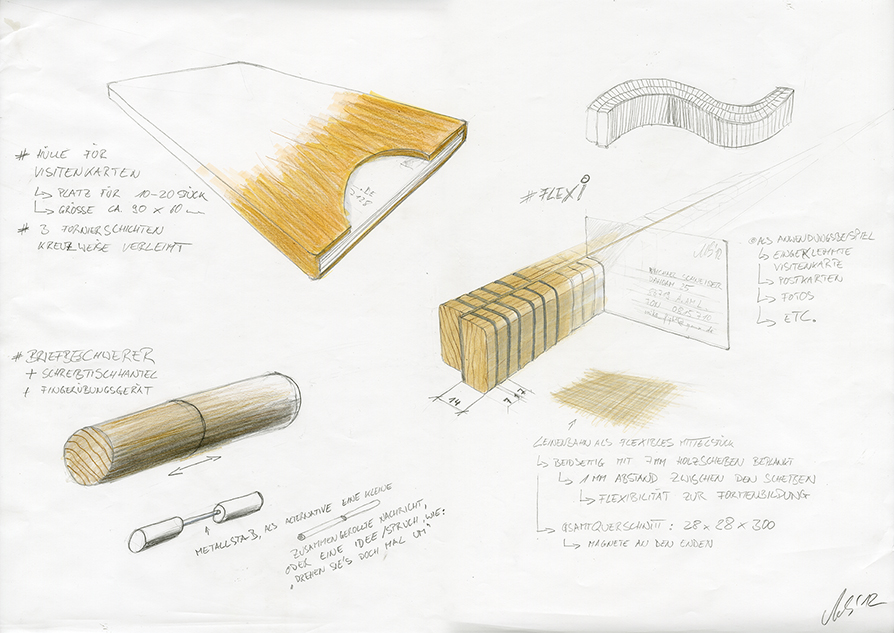 # HÜLLE FÜR
VISITENKARTEN
↳ PLATZ FÜR 10-20 STÜCK
↳ GRÖSSE CA. 90 X 60 mm
# 3 FORNIERSCHICHTEN
KREUZWEISE VERLEIMT
# BRIEFBESCHWERER
+ SCHREIBTISCHHANTEL
+ FINGERÜBUNGSGERÄT
METALLSTAB, ALS ALTERNATIVE EINE KLEINE
ZUSAMMENGEROLLTE NACHRICHT,
ODER EINE IDEE/SPRUCH WIE:
"DREHEN SIE'S DOCH MAL UM"
# FLEXi
ALS ANWENDUNGSBEISPIEL
↳ EINGEKLEMMTE
VISITENKARTE
↳ POSTKARTEN
↳ FOTOS
↳ ETC.
14
7 1 7
LEINENBAHN ALS FLEXIBLES MITTELSTÜCK
↳ BEIDSEITIG MIT 7MM HOLZSCHEIBEN BEKLEBT
↳ 1 MM ABSTAND ZWISCHEN DEN SCHEIBEN
↳ FLEXIBILITÄT ZUR FORMENBILDUNG
↳ GSAMTQUERSCHNITT: 28 x 28 x 300
↳ MAGNETE AN DEN ENDEN